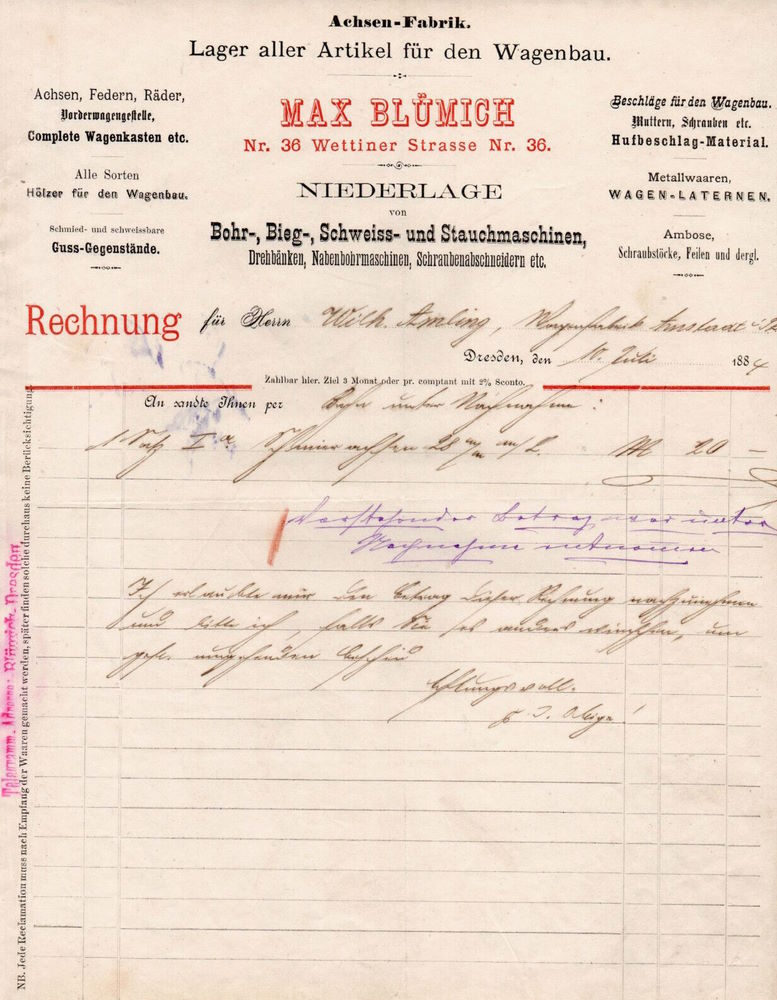 Achsen-Fabrik.
Lager aller Artikel für den Wagenbau.
Achsen, Federn, Räder,
Vorderwagengestelle,
Complete Wagenkasten etc.
Alle Sorten
Hölzer für den Wagenbau.
Schmied- und schweissbare
Guss-Gegenstände.
MAX BLÜMICH
Nr. 36 Wettiner Strasse Nr. 36.
NIEDERLAGE
von
Bohr-, Bieg-, Schweiss- und Stauchmaschinen,
Drehbänken, Nabenbohrmaschinen, Schraubenabschneidern etc.
Beschläge für den Wagenbau.
Muttern, Schrauben etc.
Hufbeschlag-Material.
Metallwaaren,
WAGEN-LATERNEN.
Ambose,
Schraubstöcke, Feilen und dergl.
Rechnung für Herrn Wilh. Amling, Wagenfabrik Arnstadt
Dresden, den 10. Juli 1884
Zahlbar hier. Ziel 3 Monat oder pr. comptant mit 2% Sconto.
An sandte Ihnen per Bahn unter Nachnahme:
1 Satz Ia Schmierachsen 28 M 20 —
Vorstehender Betrag war unter
Nachnahme entnommen
Ich erlaubte mir den Betrag dieser Rechnung nachzunehmen
und bitte ich, falls Sie es anders wünschen, um
gefl. umgehenden Bescheid
Achtungsvoll.
D. Obige!
Telegramm-Adresse: Blümich-Dresden
NB. Jede Reclamation muss nach Empfang der Waaren gemacht werden, später finden solche durchaus keine Berücksichtigung.